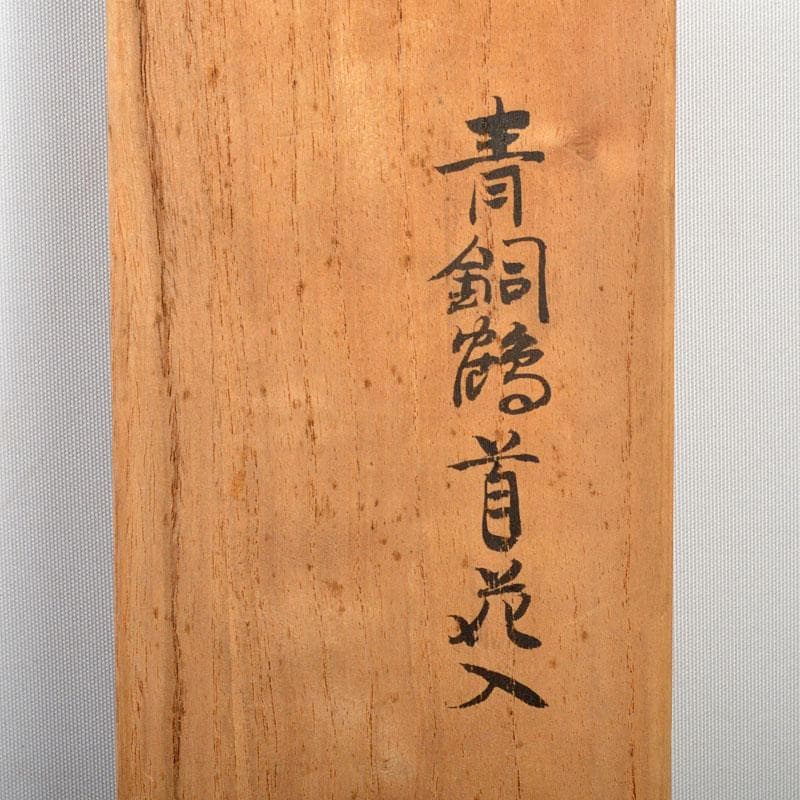 青銅鶴首花入